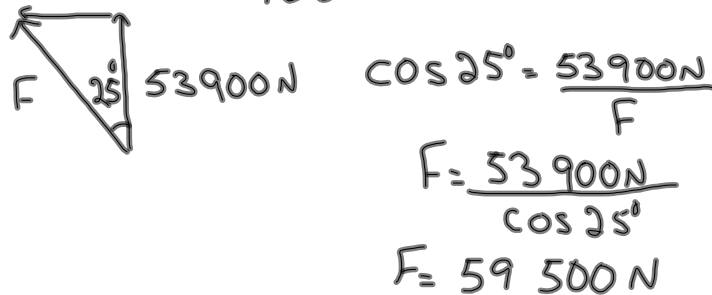 F 25° 53900N
cos25° = 53900N
F
F = 53900N
cos25°
F = 59 500N